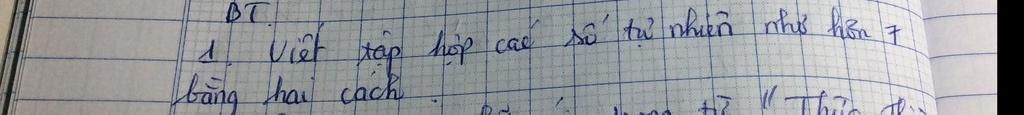 BT.
1. Viết tập hợp các số tự nhiên nhỏ hơn 7
bằng hai cách.
từ " Thừa